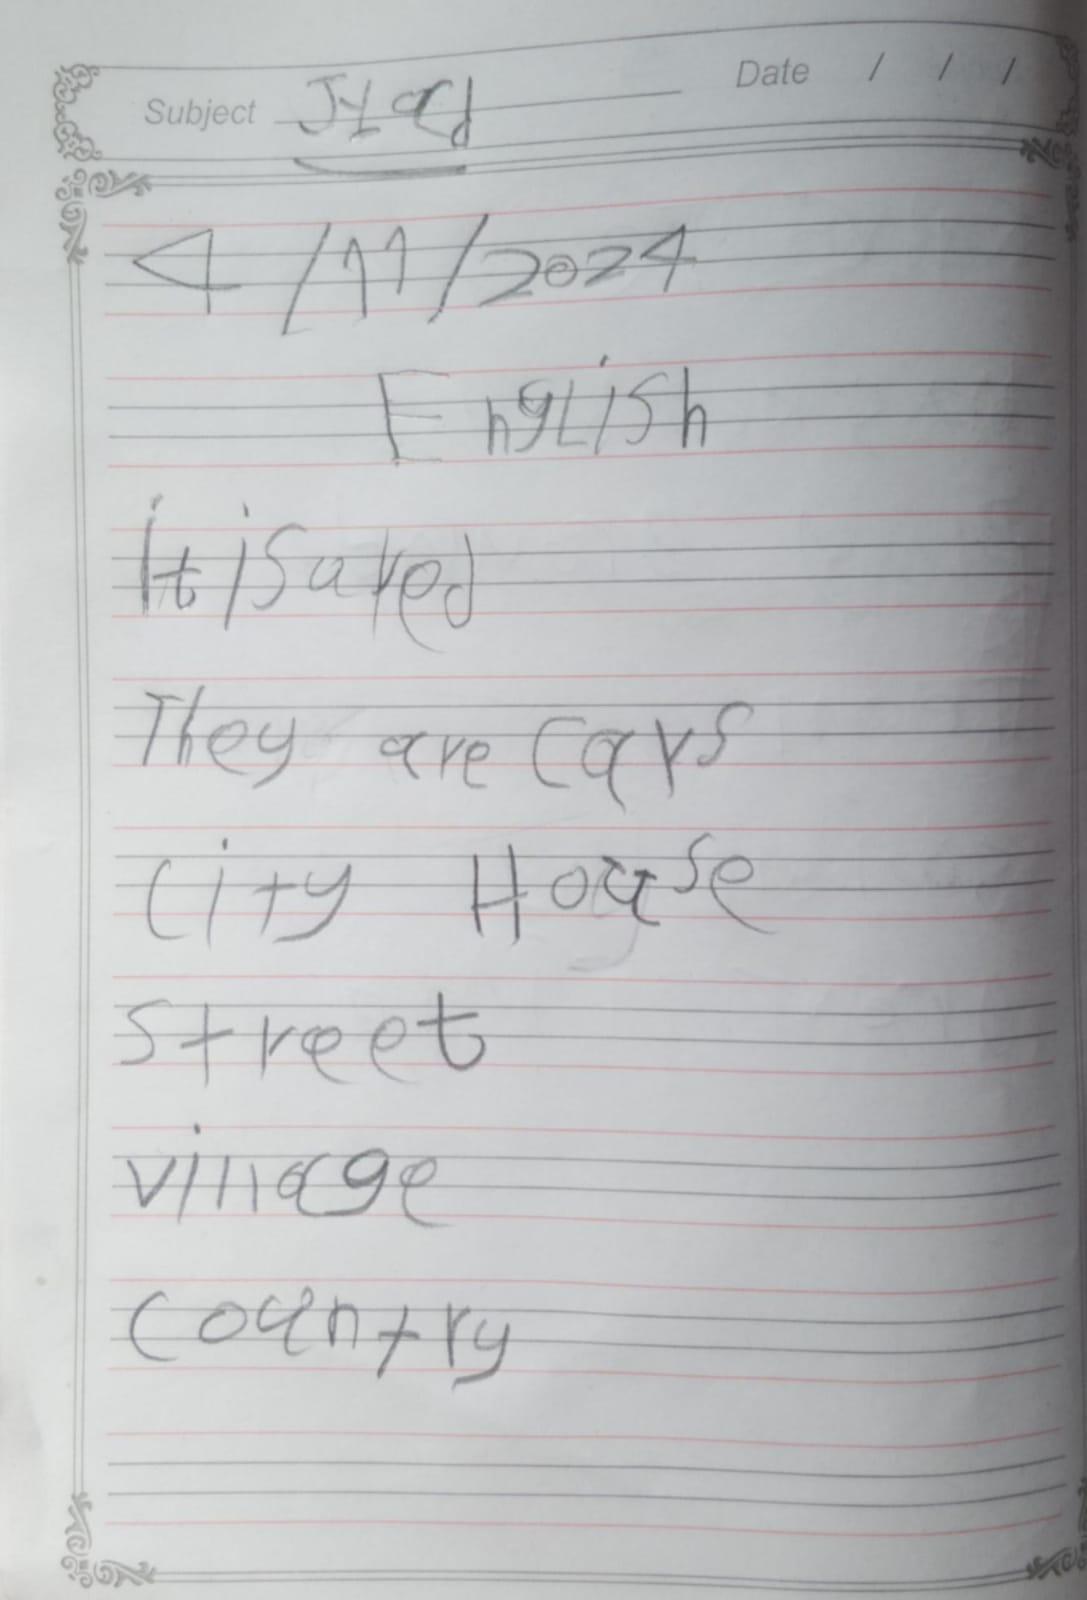 Subject Jyad Date / / /
4/11/2024
English
It is a red
They are cars
City House
Street
village
country